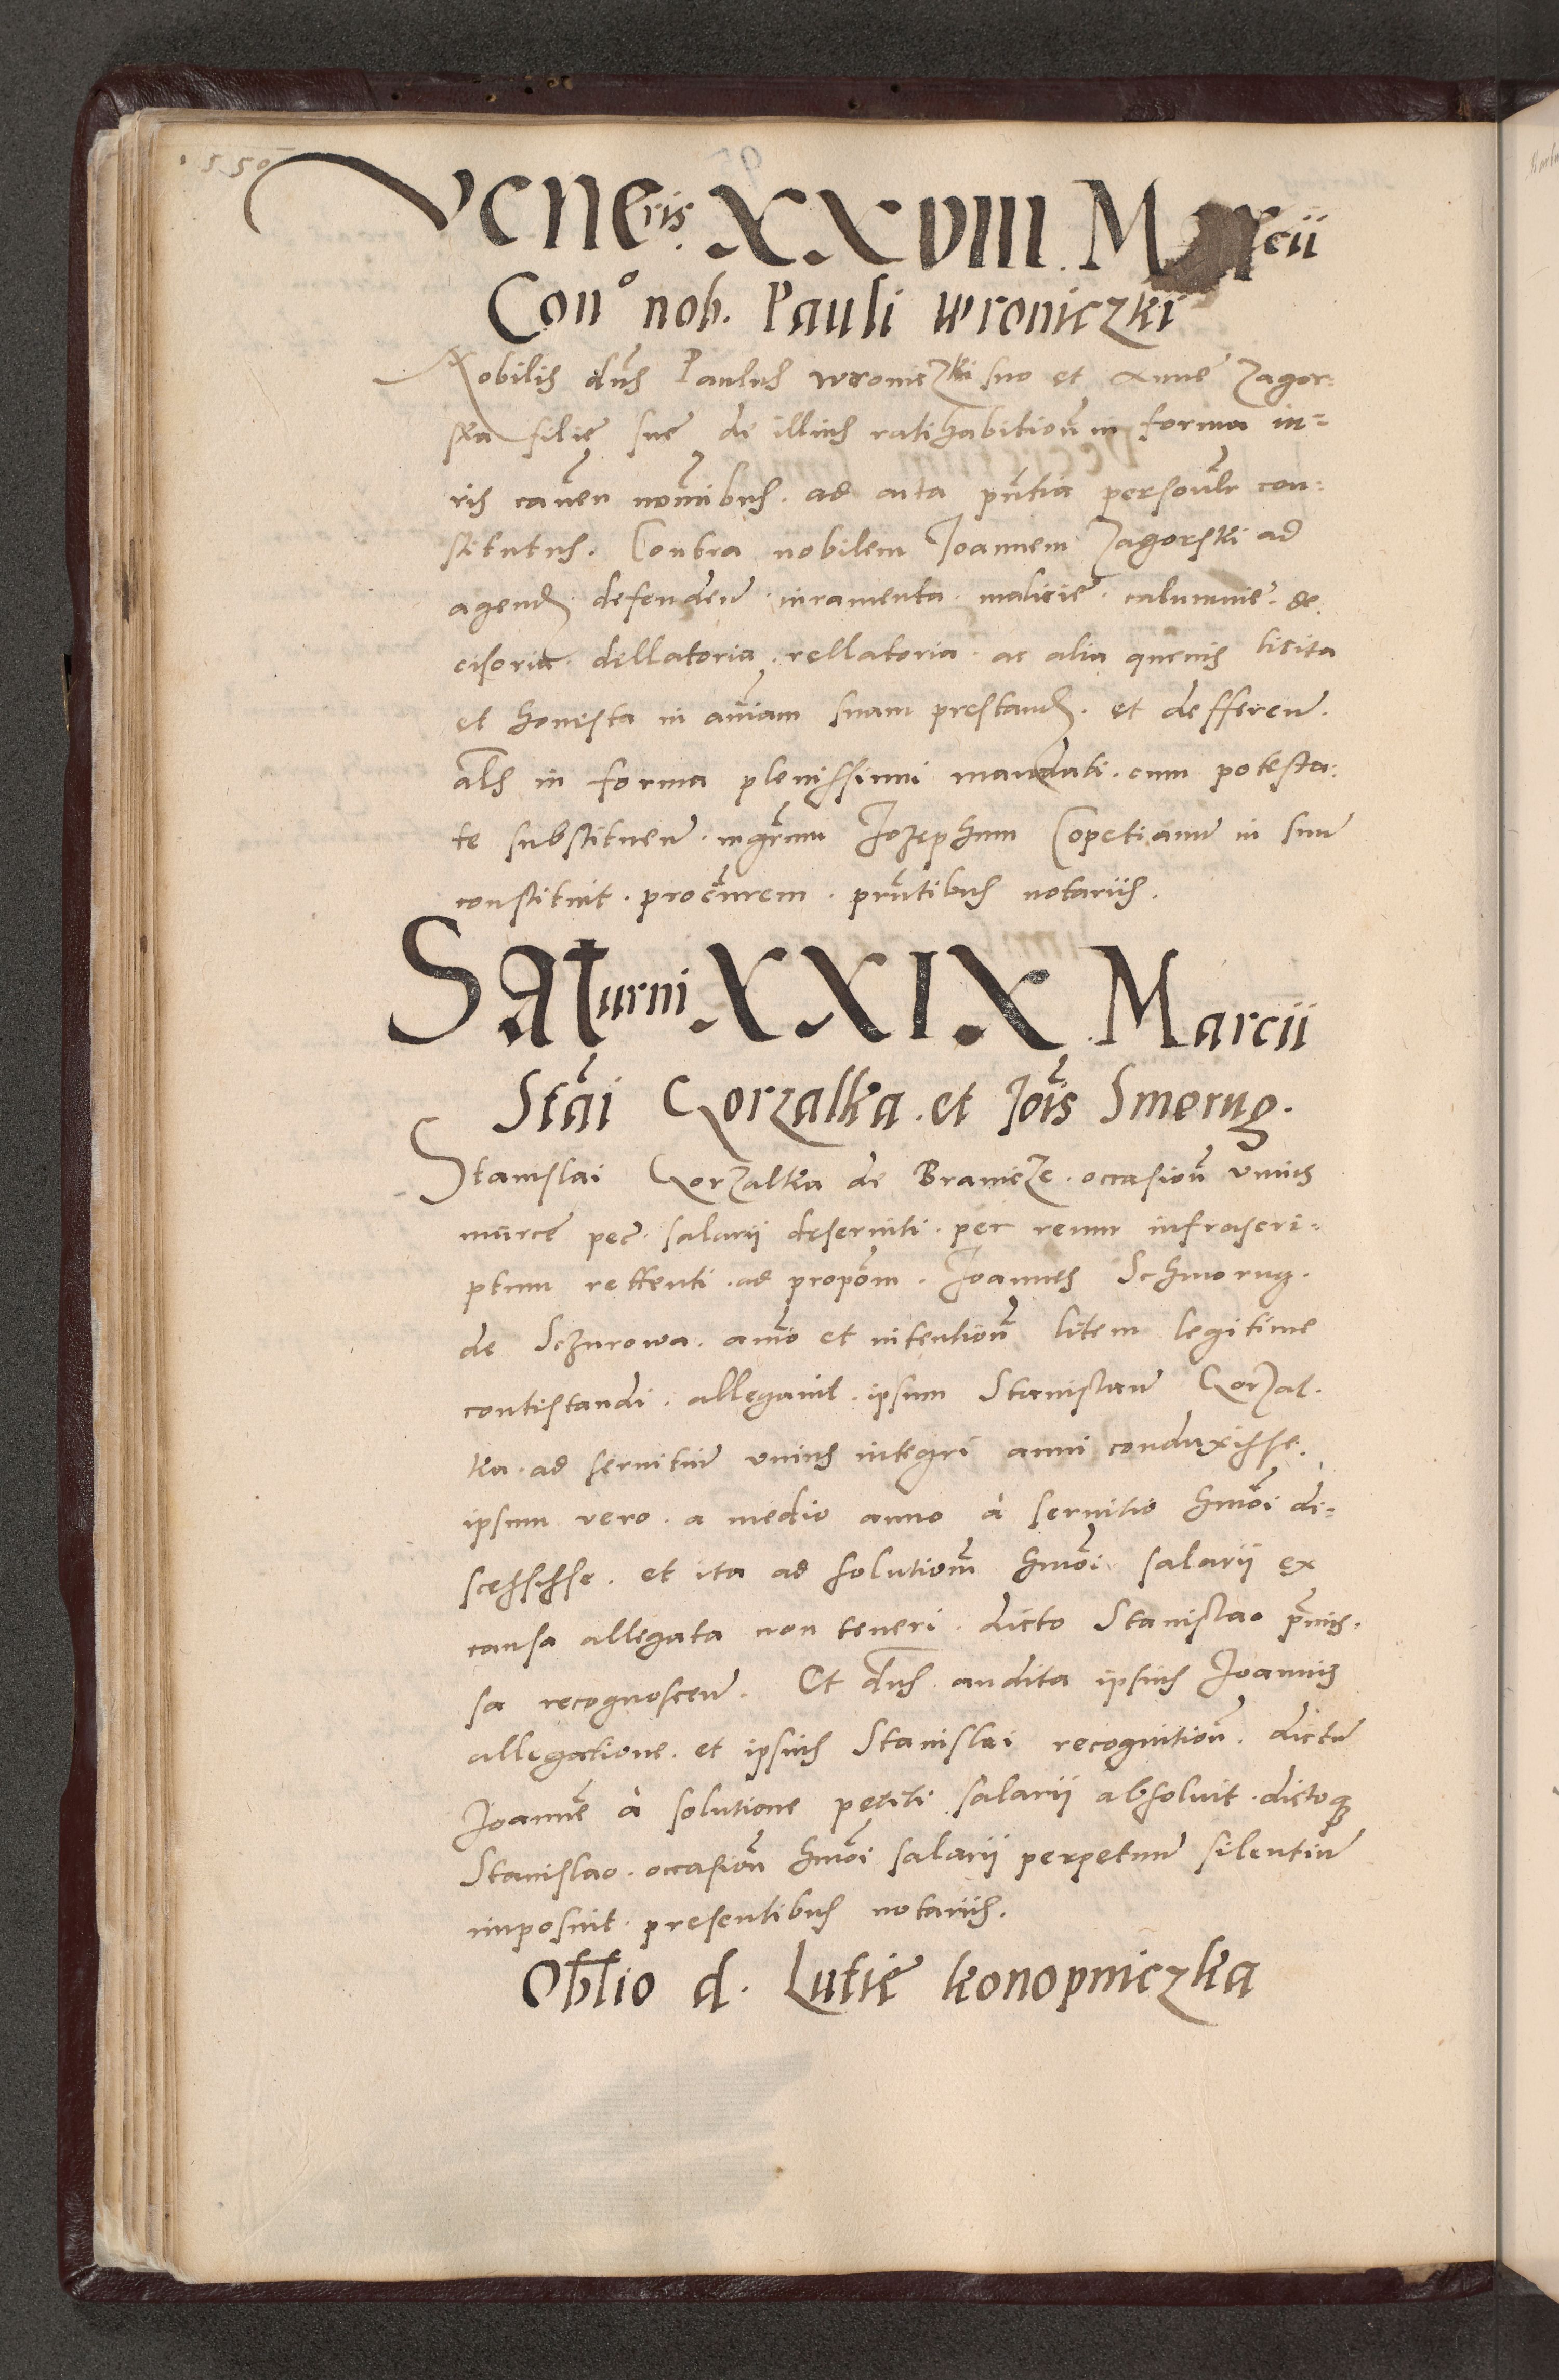 1550
Veneris XXVIII Marcii
Con° nob. Pauli wroniczki
Nobilis dñs Paulus wroniczki suo et Anne Zagor=
ska filię suę de illius ratihabitioñ in forma iu=
ris caveñ noĩnibus . ad acta pñtia personãlr con=
stitutus . Contra nobilem Joannem Zagorski ad
agend defendeñ . iuramenta . malicie . calumnie . de
cisoria . dellatoria . rellatoria . ac alia quevis licita
et honesta in aĩam suam prestand . et defferenđ .
als in forma plenissimi mandati . cum potesta=
te substituenđ . mgrm̃ Jozephum Copetianũ in suũ
constituit . procũrem . pñtibus notariis .
Saturni XXIX Marcii
Stãi Gorzalka . et Joĩs Smorug .
Stanislai Gorzalka de Branicze . occasioñ unius
marce pec̃ . salarii deserviti . per reum infrascri=
ptum rettenti . ad propõm . Joannes Schmorug .
de Sczurowa . aĩo et intentioñ litem legitime
contestandi . allegavit . ipsum Stanislaũ Gorzal .
ka . ad servitiũ unius integri anni conduxisse .
ipsum vero . a medio anno à servitio hmõi di=
scessisse . et ita ad solutioñm hmõi salarii ex
causa allegata non teneri . dicto Stanislao p̃mis .
sa recognosceñ . Et dñs audita ipsius Joannis
allegatione . et ipsius Stanislai recognitioñ . dictũ
Joannẽ à solutione petiti salarii absolvit . dictoq
Stanislao . occasioñ hmõi salarii perpetuũ silentiũ
imposuit . presentibus notariis .
Obl̃io d. Lutię konopniczka